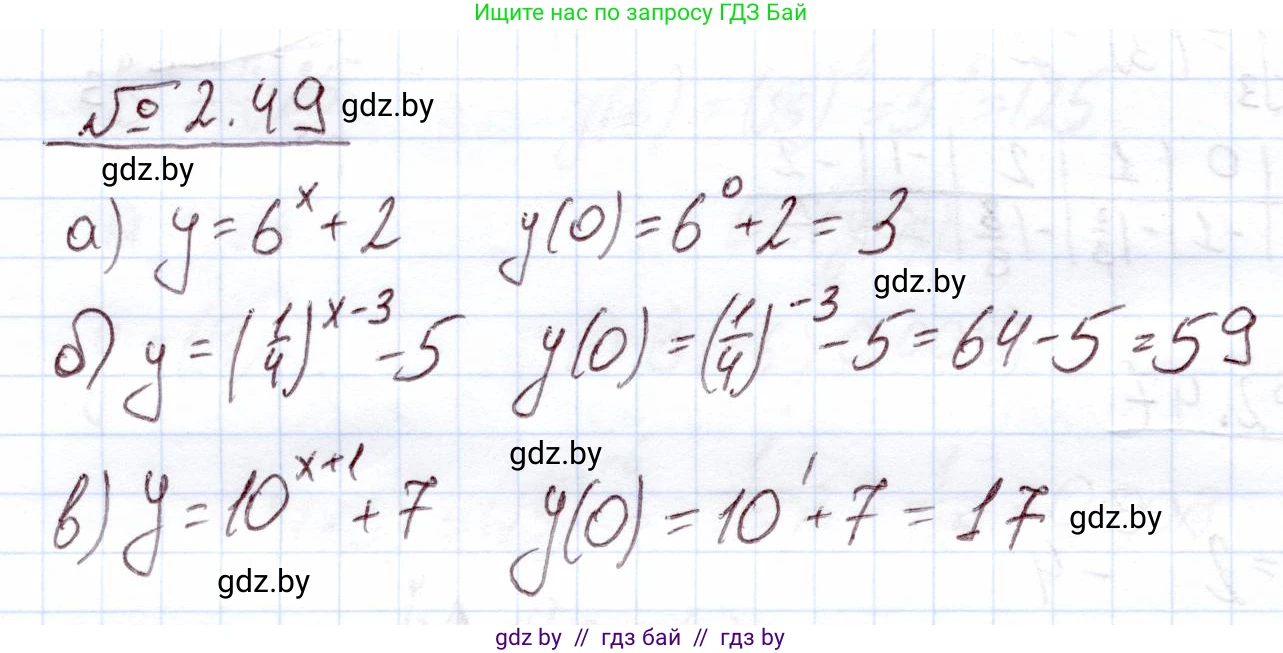 Ищите нас по запросу ГДЗ Бай
№ 2.49 gdz.by
gdz.by
а) y = 6^x + 2 y(0) = 6^0 + 2 = 3
gdz.by
б) y = (1/4)^(x-3) - 5 y(0) = (1/4)^(-3) - 5 = 64 - 5 = 59
gdz.by
в) y = 10^(x+1) + 7 y(0) = 10^1 + 7 = 17 gdz.by
gdz.by
gdz by // гдз бай // гдз by